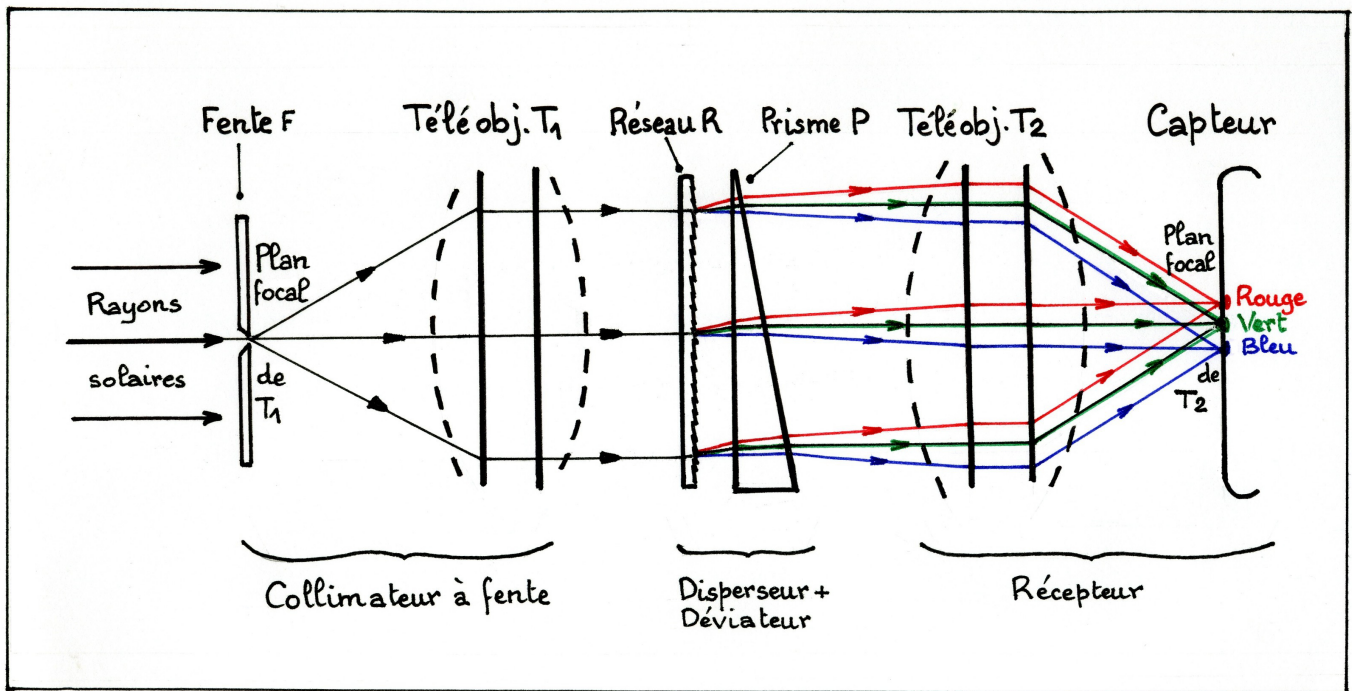 Fente F
Téléobj. T1
Réseau R
Prisme P
Téléobj. T2
Capteur
Rayons
solaires
Plan
focal
de
T1
Plan
focal
de
T2
Rouge
Vert
Bleu
Collimateur à fente
Disperseur +
Déviateur
Récepteur